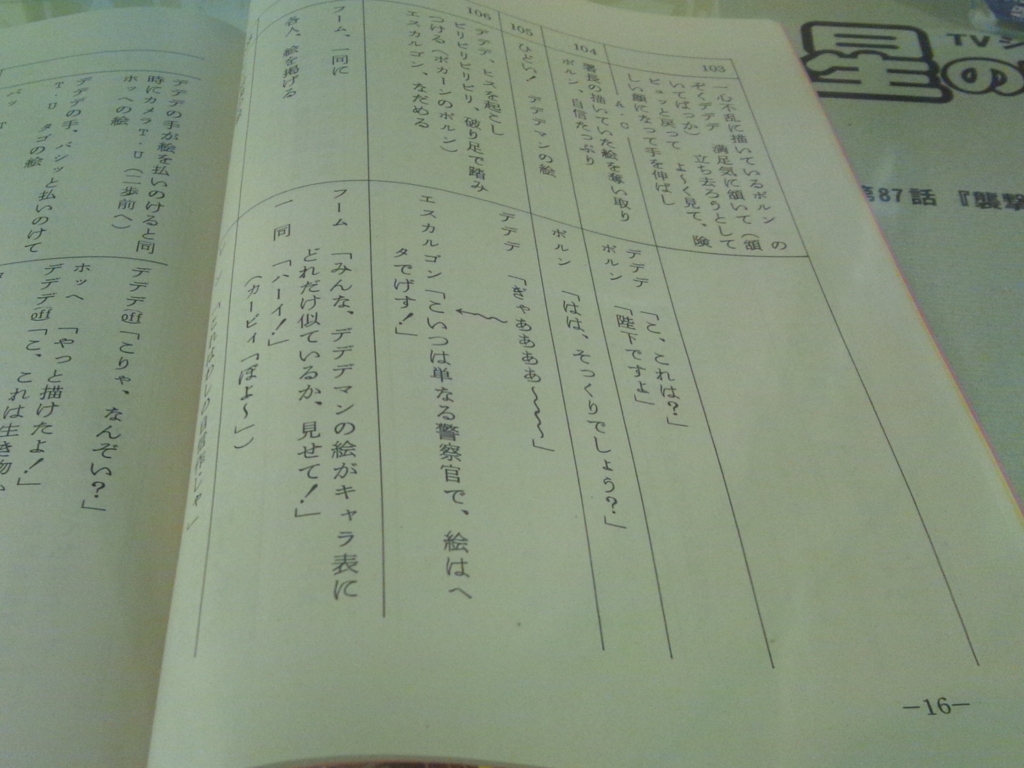 103
一心不乱に描いているボルン の
ぞくデデデ 満足気に頷いて(頷
いてばっか) 立ち去ろうとして
ピュッと戻って よ〜く見て、険
しい顔になって手を伸ばし
(A・C)
デデデ 「こ、これは?」
ボルン 「陛下ですよ」
104
署長の描いていた絵を奪い取り
ボルン、自信たっぷり
ボルン 「はは、そっくりでしょう?」
105
ひどい! デデデマンの絵
デデデ 「ぎゃああああ〜〜〜〜」
106
デデデ、ヒスを起こし
ビリビリビリビリ、破り足で踏み
つける(ポカーンのボルン)
エスカルゴン、なだめる
エスカルゴン「こいつは単なる警察官で、絵はヘ
タでげす!」
フーム、一同に
フーム 「みんな、デデデマンの絵がキャラ表に
どれだけ似ているか、見せて!」
各人、絵を掲げる
一 同 「ハーイ!」
(カービィ「ぽよ〜」)
デデデの手が絵を払いのけると同
時にカメラT・U(二歩前へ)
ホッへの絵
デデデ(画)「こりゃ、なんぞい?」
ホッヘ 「やっと描けたよ!」
デデデの手、バシッと払いのけて
T・U タゴの絵
デデデ(画)「こ、これは生き物
-16-
星の
TVシ
第87話 『襲撃